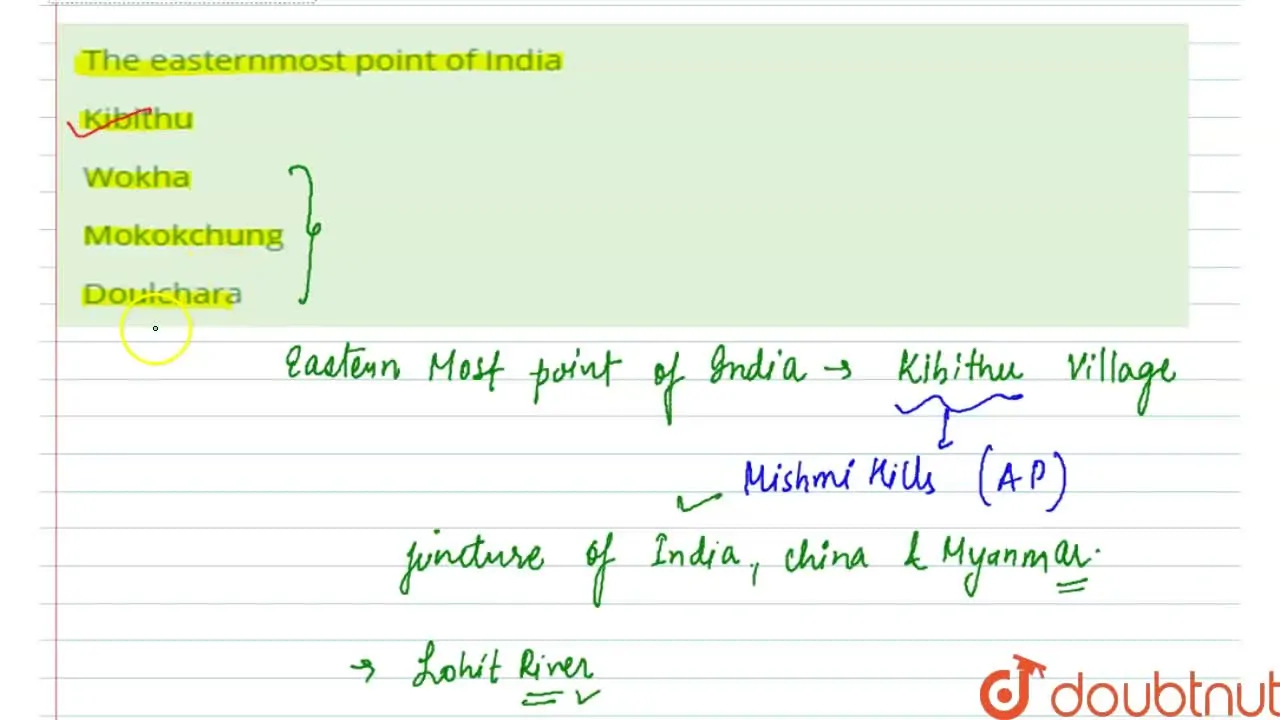 The easternmost point of India
Kibithu
Wokha
Mokokchung
Doulchara
Eastern Most point of India → Kibithu Village
Mishmi Hills (AP)
juncture of India, china & Myanmar.
→ Lohit River
doubtnut